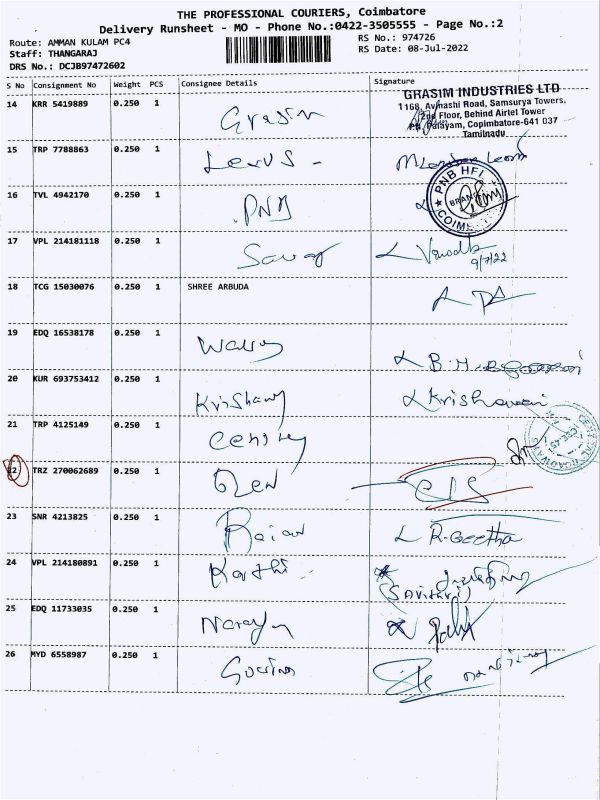 THE PROFESSIONAL COURIERS, Coimbatore
Delivery Runsheet - MO - Phone No.:0422-3505555 - Page No.:2
Route: AMMAN KULAM PC4
RS No.: 974726
Staff: THANGARAJ
RS Date: 08-Jul-2022
DRS No.: DCJB97472602
S No Consignment No Weight PCS Consignee Details Signature
14 KRR 5419889 0.250 1 Grasim
GRASIM INDUSTRIES LTD
1168, Avinashi Road, Samsurya Towers,
2nd Floor, Behind Airtel Tower
Palayam, Copimbatore-641 037
Tamilnadu
15 TRP 7788863 0.250 1 Lexus -
16 TVL 4942170 0.250 1 PNB
PNB HFL
BRANCH
17 VPL 214181118 0.250 1
9/7/22
18 TCG 15030076 0.250 1 SHREE ARBUDA
19 EDQ 16538178 0.250 1 B.H.
20 KUR 693753412 0.250 1 Krishany Krishaveni
21 TRP 4125149 0.250 1
22 TRZ 270062689 0.250 1 Glen
23 SNR 4213825 0.250 1 Rajan R. Geetha
24 VPL 214180891 0.250 1 Karthi
(Savithri)
25 EDQ 11733035 0.250 1 Narayan
26 MYD 6558987 0.250 1